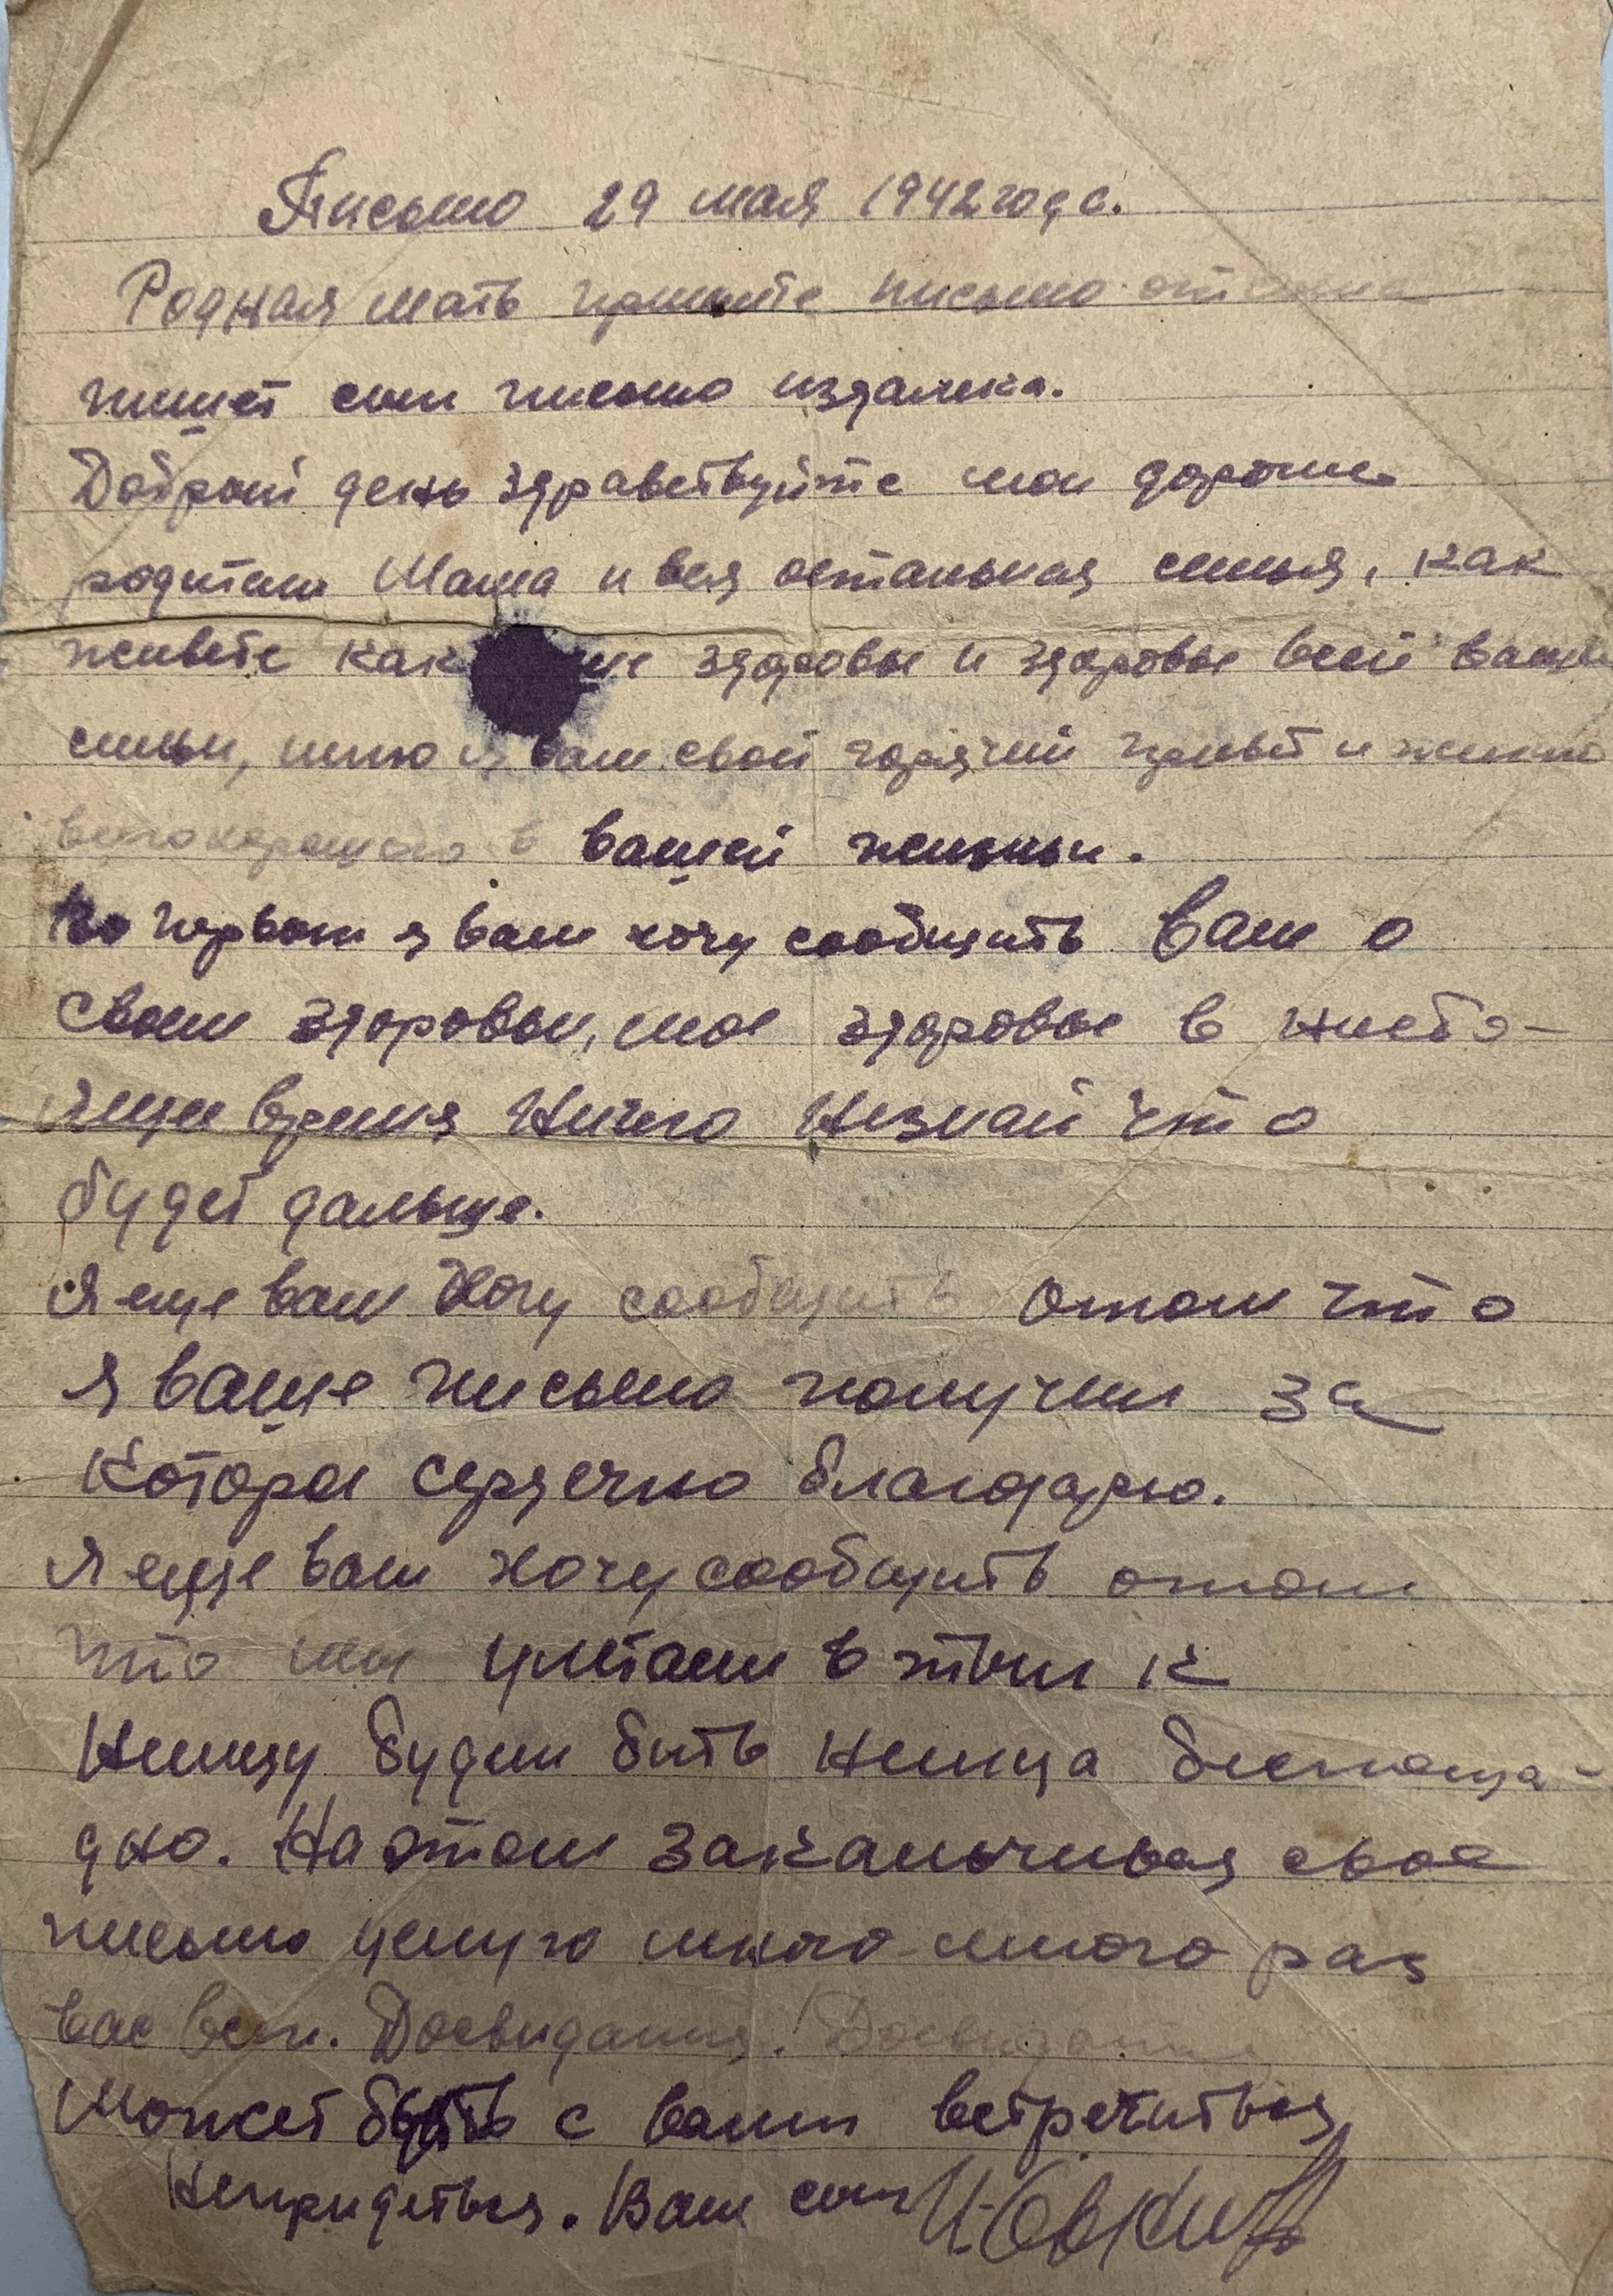 Письмо 29 мая 1942 года.
Родная мать примите письмо от сына
пишет сын письмо издалека.
Добрый день здравствуйте мои дорогие
родители Маша и вся остальная семья, как
живете как здоровье и здоровье всей вашей
семьи, шлю я вам свой горячий привет и желаю
всего хорошего в вашей жизньи.
Во первом я вам хочу сообщить Вам о
своем здоровьи, мое здоровье в насто-
ящее время Ничего Незнай что
будет дальше.
Я еще вам Хочу сообщить отом что
я ваше письмо получил за
Которое сердечно благодарю.
Я еще вам хочу сообщить отом
что мы улетаем в тыл к
Немцу будем бить немца беспоща-
дно. На этом заканьчиваю свое
письмо целую много много раз
вас всех. Досвидания! Досвидания
Может быть с вами встретиться
Непридеться. Ваш сын